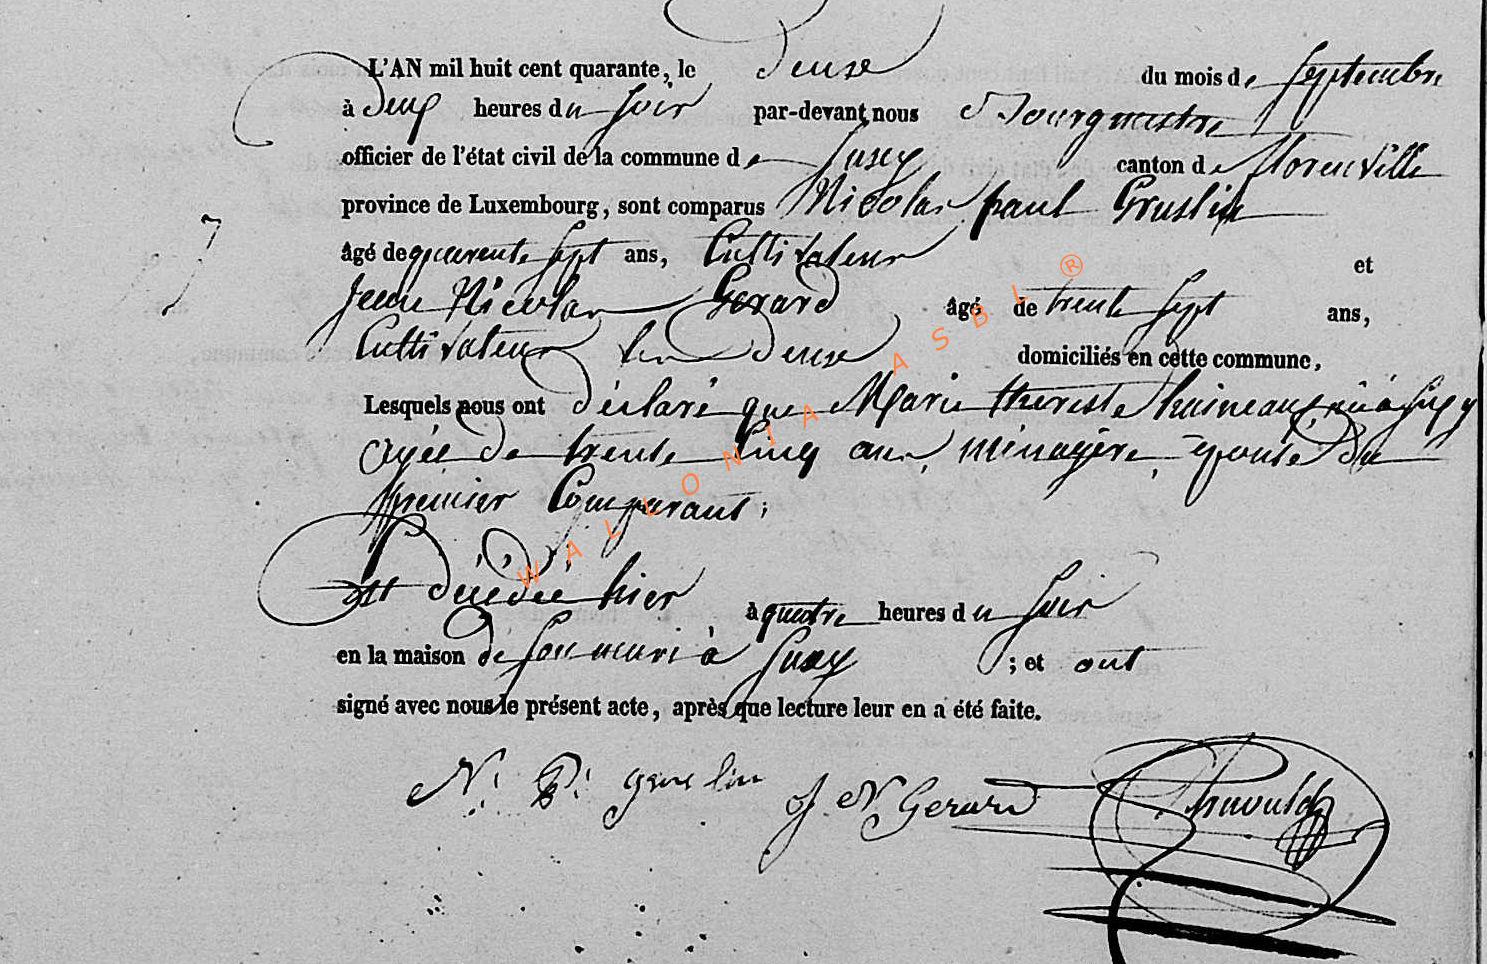 L'AN mil huit cent quarante, le deuse du mois de Septembre
à deux heures du soir par-devant nous Bourgmestre
officier de l'état civil de la commune de Suxy canton de florenville
province de Luxembourg, sont comparus Nicolas paul Gruslin
âgé de quarente sept ans, Cultivateur et
Jean Nicolas Gerard âgé de trente sept ans,
Cultivateur les deuse domiciliés en cette commune,
Lesquels nous ont déclaré que Marie thereste née à Suxy
agée de trente Cinq ans, ménagère, epouse du
premier Comparant;
Est décédée hier à quatre heures du soir
en la maison de son mari à Suxy ; et ont
signé avec nous le présent acte, après que lecture leur en a été faite.
N: P: gruslin J N Gerard
WALLONIA ASBL ®